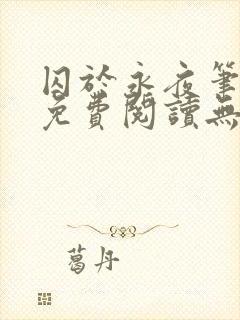 囚於永夜筆
免費閱讀無
葛丹